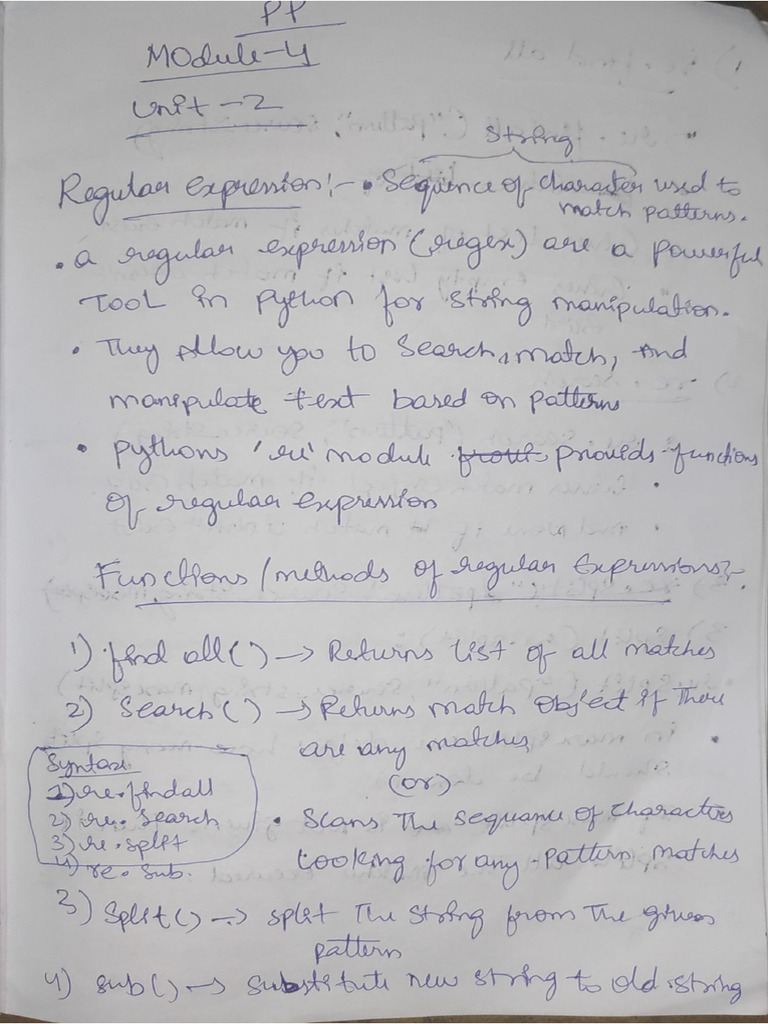 PP
Module-4
Unit-2
String
Regular expression:- • Sequence of character used to
match patterns.
• a regular expression (regex) are a powerful
Tool in python for string manipulation.
• They Allow you to Search, match, And
manipulate text based on patterns
• pythons 're' module provids functions
of regular expression
Functions/methods of regular Expressions:-
1) find all() → Returns list of all matches
2) Search() → Returns match Object if There
are any matches
(or)
• Scans The sequance of characters
looking for any pattern matches
Syntax
1) re.findall
2) re.Search
3) re.split
4) re.sub.
3) Split() → split The string from The given
pattern
4) sub() → Substitute new string to old string